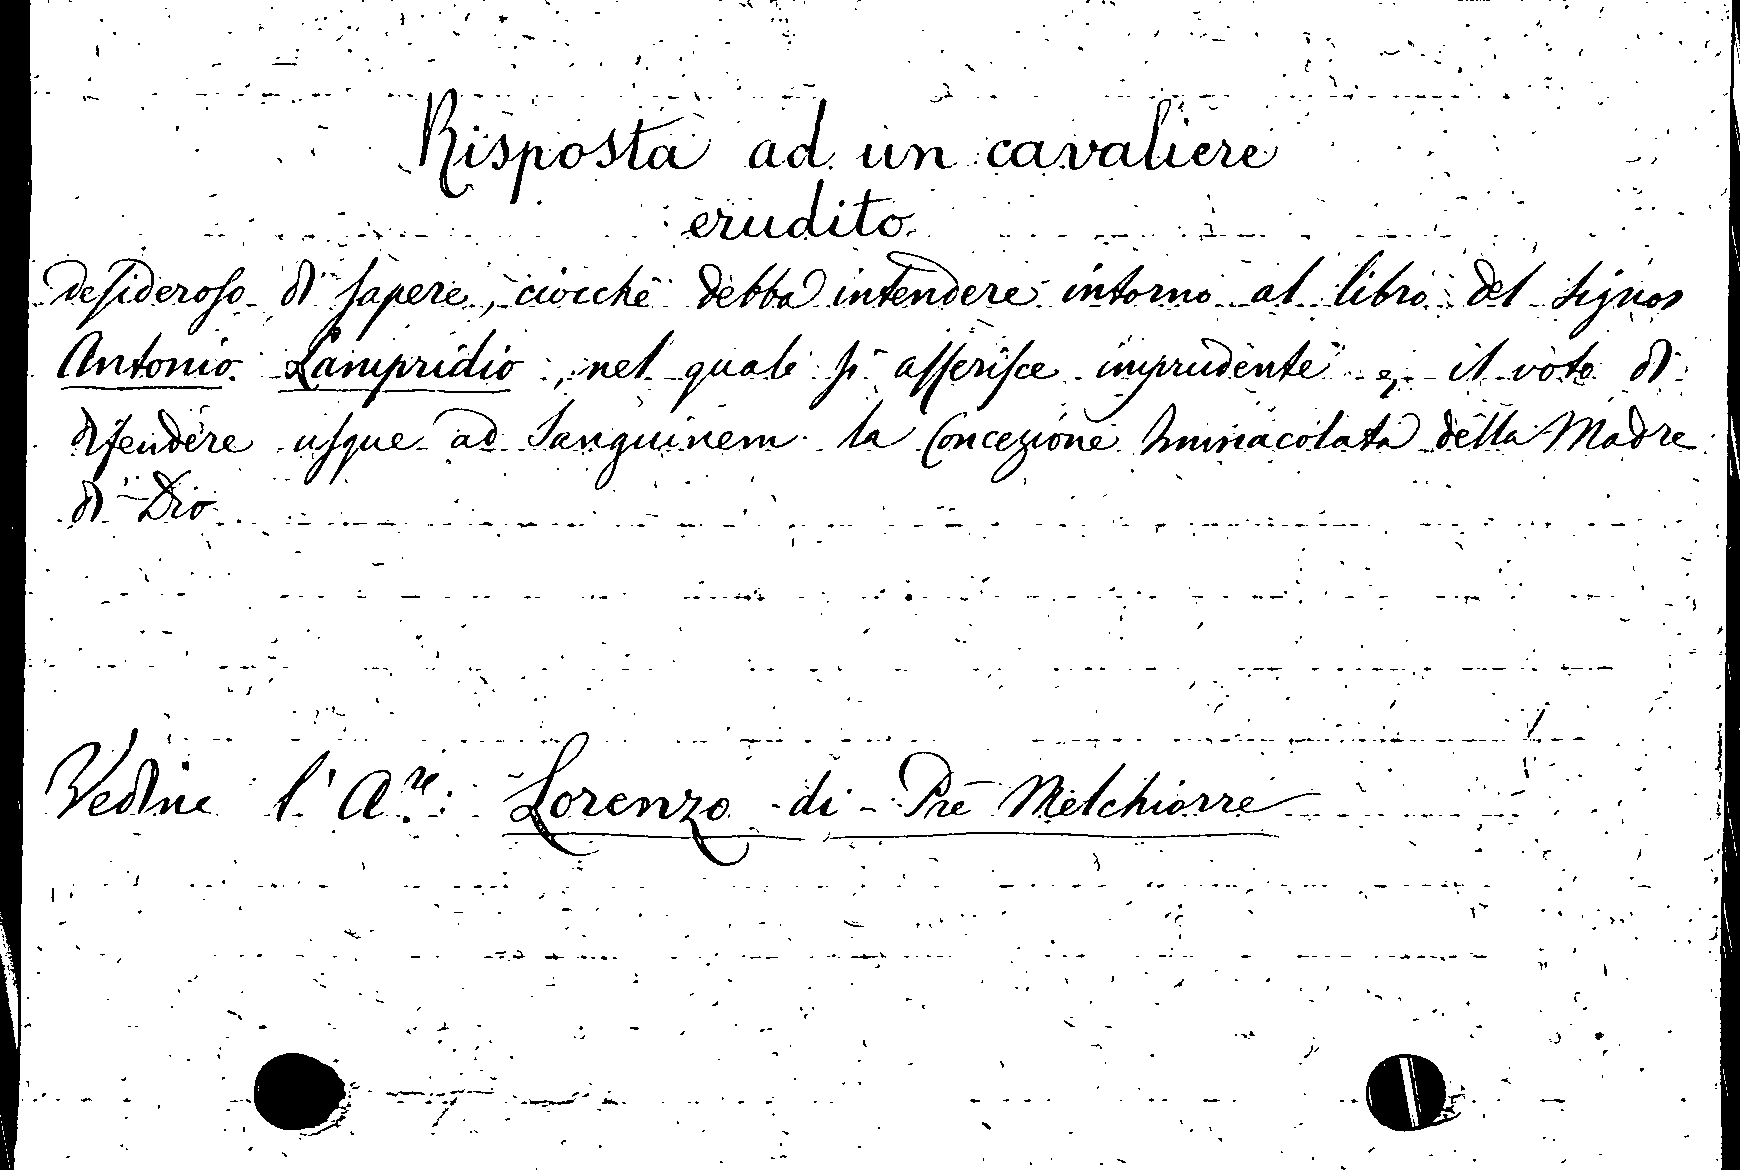 Risposta ad un cavaliere
erudito
desideroso di sapere, ciocchè debba intendere intorno al libro del Signor
Antonio Lampridio, nel quale si asserisce imprudente il voto di
difendere usque ad Sanguinem la Concezione Immacolata della Madre
di Dio
Vedine l'A.re: Lorenzo di Pre Melchiorre